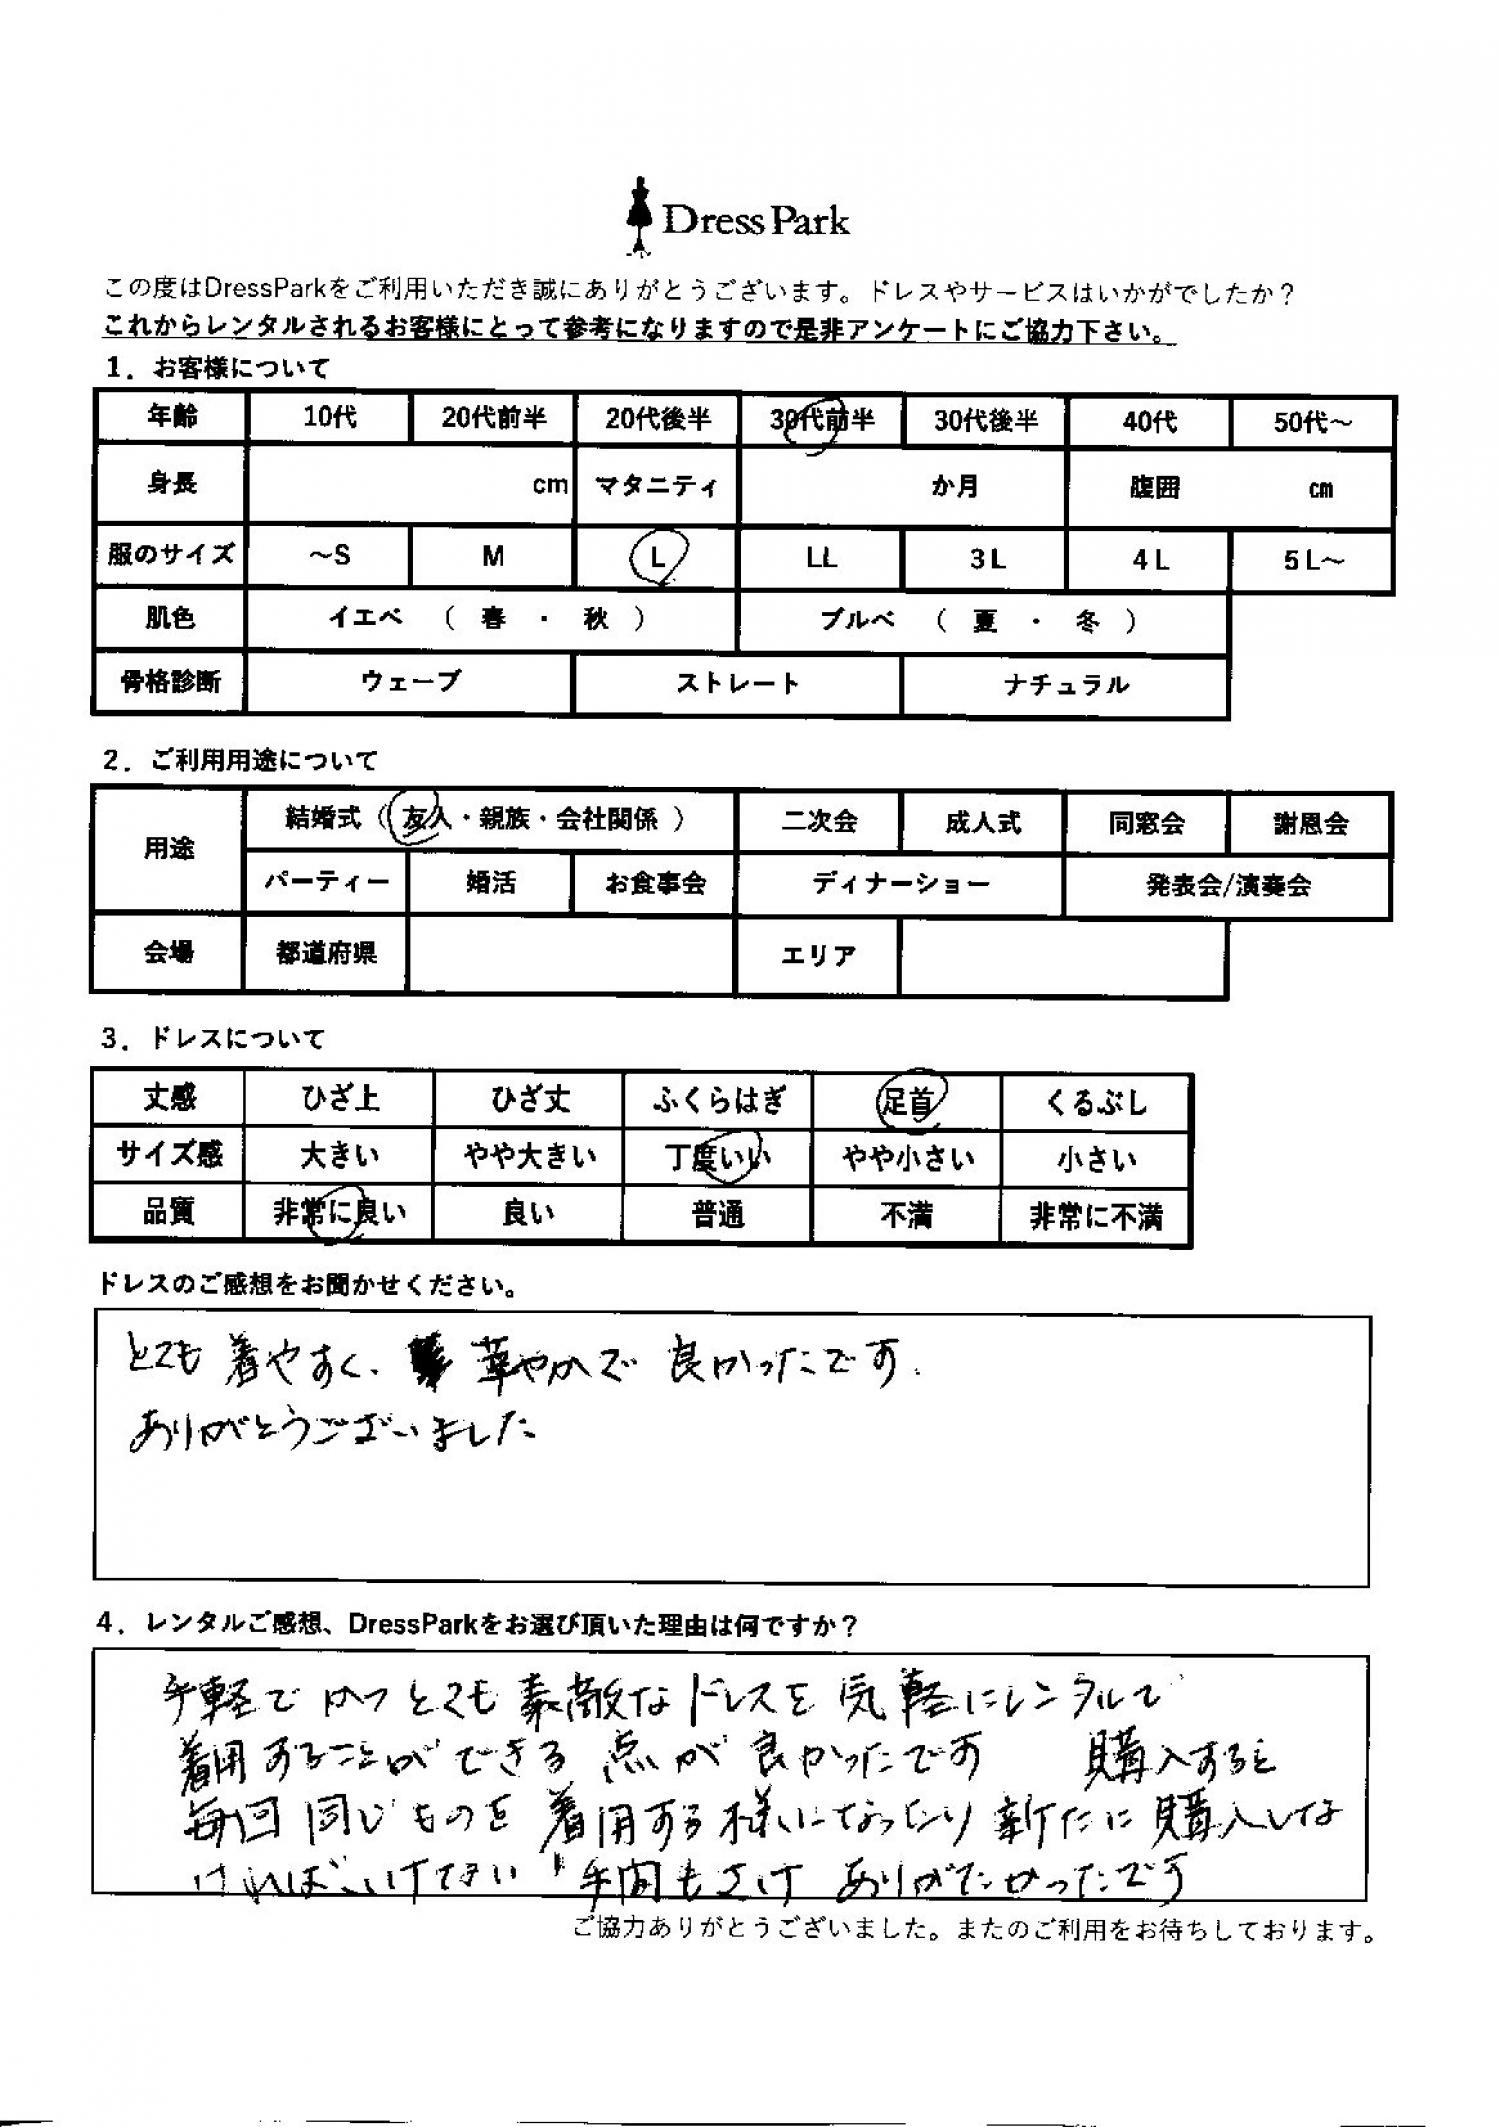 Dress Park
この度はDressParkをご利用いただき誠にありがとうございます。ドレスやサービスはいかがでしたか？
これからレンタルされるお客様にとって参考になりますので是非アンケートにご協力下さい。
1．お客様について
年齢 10代 20代前半 20代後半 30代前半 30代後半 40代 50代～
身長 cm マタニティ か月 腹囲 ㎝
服のサイズ ～S M L LL 3L 4L 5L～
肌色 イエベ （ 春 ・ 秋 ） ブルベ （ 夏 ・ 冬 ）
骨格診断 ウェーブ ストレート ナチュラル
2．ご利用用途について
用途 結婚式（友人・親族・会社関係 ） 二次会 成人式 同窓会 謝恩会
パーティー 婚活 お食事会 ディナーショー 発表会/演奏会
会場 都道府県 エリア
3．ドレスについて
丈感 ひざ上 ひざ丈 ふくらはぎ 足首 くるぶし
サイズ感 大きい やや大きい 丁度いい やや小さい 小さい
品質 非常に良い 良い 普通 不満 非常に不満
ドレスのご感想をお聞かせください。
とても 着やすく、華やかで 良かったです.
ありがとうございました
4．レンタルご感想、DressParkをお選び頂いた理由は何ですか？
手軽で かつ とても 素敵な ドレスを 気軽にレンタルで
着用することができる 点が 良かったです 購入すると
毎回 同じものを 着用する様になったり 新たに 購入しな
ければいけない 手間もさけ ありがたかったです
ご協力ありがとうございました。またのご利用をお待ちしております。